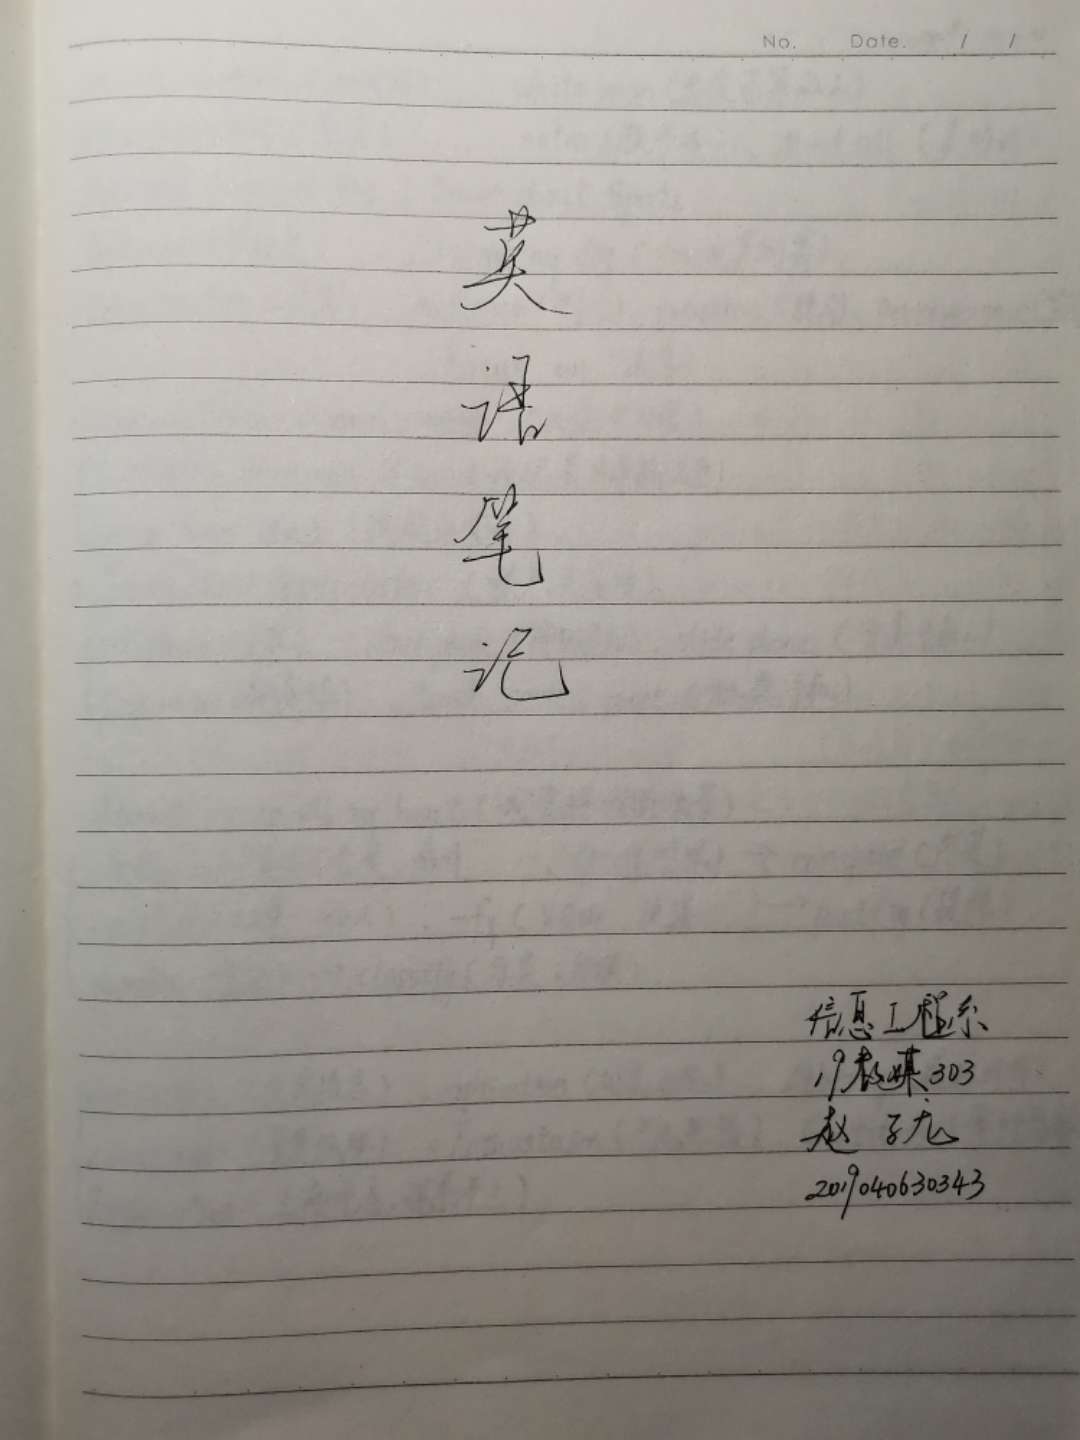 No. Date. / /
英
语
笔
记
信息工程系
19数媒303
赵子龙
2019040630343